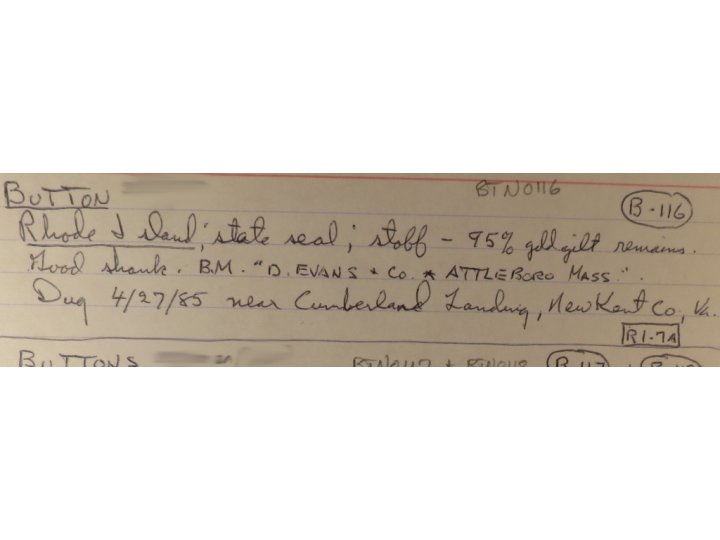 BUTTON BTN0116 B-116
Rhode Island; state seal; staff - 95% gold gilt remains.
Good shank. B.M. "D. EVANS + Co. ★ ATTLEBORO MASS."
Dug 4/27/85 near Cumberland Landing, New Kent Co, Va.
RI-7A
BUTTONS BTN0117 + BTN0118 B-117